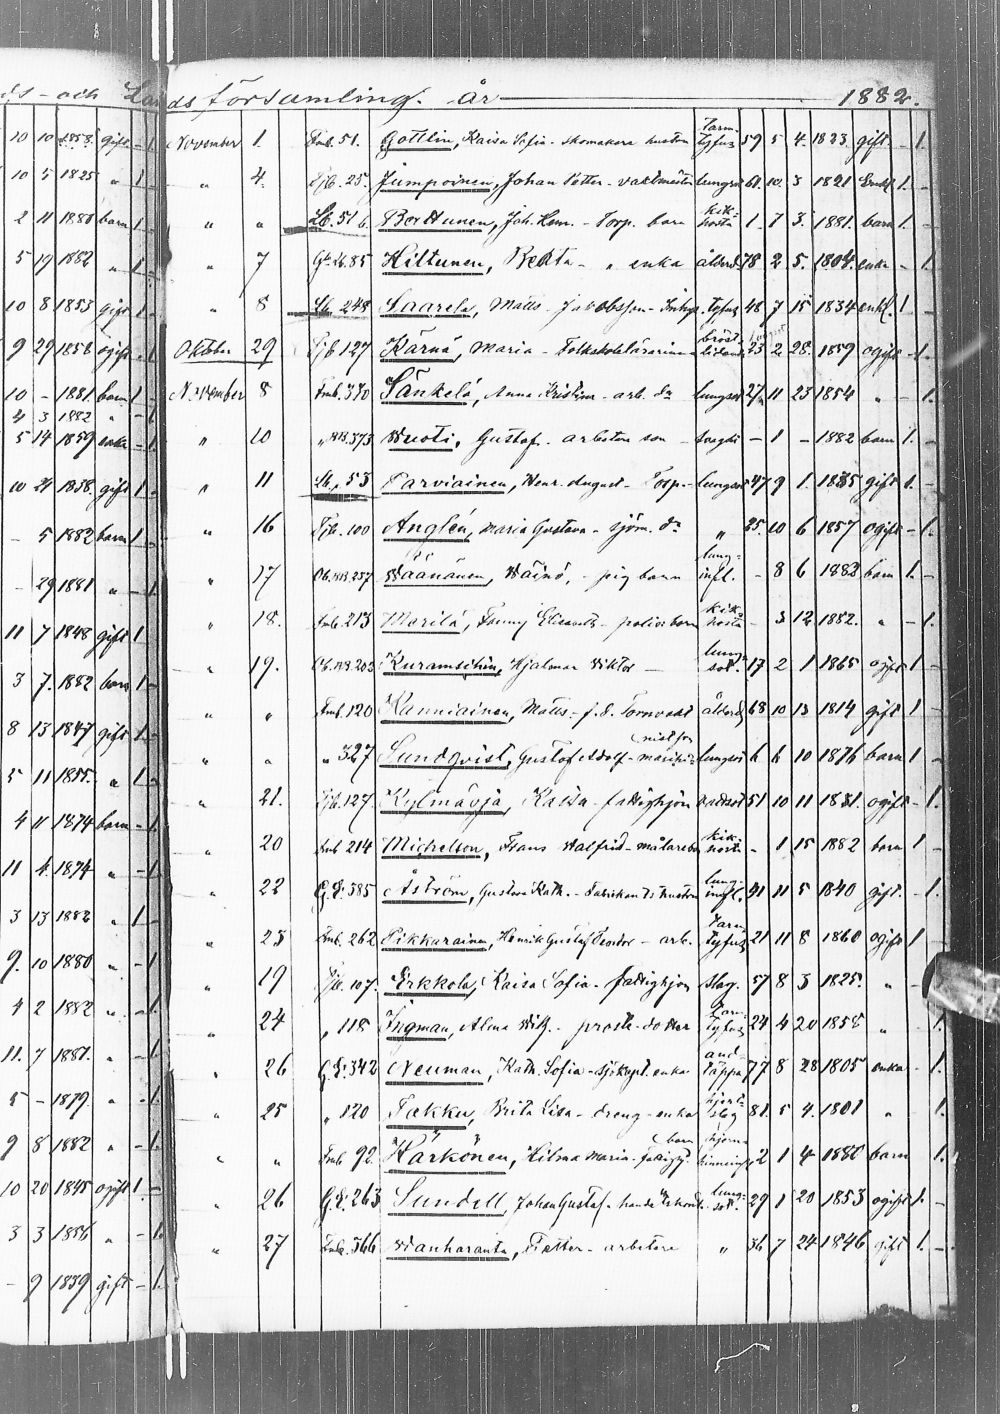 ds- och Lands församling. år 1882.
10 10 1858 gift - 1.
10 5 1825 " 1 -
2 11 1880 barn 1 -
5 19 1882 " - 1.
10 8 1853 gift 1 -
9 29 1858 ogift - 1
10 - 1881 barn 1 -
4 3 1882 " - 1
5 14 1859 enka - 1.
10 21 1838 gift 1 -
- 5 1882 barn 1 -
- 29 1881 " - 1.
11 7 1848 gift 1.
3 7. 1882 barn 1 -
8 13 1847 gift 1.
5 11 1855. " 1 -
4 11 1874 barn - 1.
11 4. 1874 " - 1
3 13 1882 " 1 -
9. 10 1880 " - 1
4 2 1882 " - 1
11. 7 1881. " - 1.
5 - 1879. " - 1.
9 8 1882 " - 1.
10 20 1845 ogift 1 -
3 3 1856 " - 1.
- 9 1839 gift - 1.
November 1. Fmb. 51. Gottlin, Kaisa Sofia - skomakare hustru Tarm-tyfus 59 5 4. 1823 gift - 1.
" 4. 25. Jumpoinen, Johan Petter - vaktmästar lungsot 61 10. 3 1821 Enkl 1. -
" " Lb. 51 b. Johan Hen. - Torp. barn kik-hosta 1 7 3. 1881. barn 1. -
" 7 85 Hiltunen, Beata - " enka ålderd 78 2 5. 1804. enka - 1.
" 8 Lb. 248 Saarela, Matts Jakobsson - Inhys. tyfus 48 7 15 1834 enkl. 1 -
Oktober 29 127 Kärnä, Maria - Folkskolelärarinna bröst-lidande 23 2 28. 1859 ogift - 1.
November 8 Fmb. 370 Sänkelä, Anna Kristina - arb. dr lungsot 27 11 23 1854 " - 1.
" 10 " 373 Wuoti, Gustaf - arbetare son - - 1 - 1882 barn 1. -
" 11 Lb. 53 Parviainen, Henr. August - Torp. - lungsot 47 9 1. 1835 gift 1. -
" 16 100 Anglén, Maria Gustava - sjöm. dr " 25. 10 6 1857 ogift - 1.
" 17 257 Wäänänen, Wäinö, - pig barn lung-infl. - 8 6 1882 barn 1. -
" 18. Fmb. 213 Marilä, Fanny Elisabeth - polisbarn kik-hosta - 3 12 1882. " - 1.
" 19. 203 Hjalmar Viktor - lung-sot. 17 2 1 1865 ogift 1
" " Fmb. 120 Kanniainen, Matts - f. d. Tornvakt ålderd 68 10 13 1814 gift 1 -
" " " 327 Sundqvist, Gustaf Adolf - lungsot 6 6 10 1876 barn 1 -
" 21. 127. Kylmäoja, Kaisa - fattighjon 51 10 11 1831. ogift - 1.
" 20 Fmb 214 Michelson, Frans Walfrid - målarebarn kik-hosta - 1 15 1882 barn 1 -
" 22 G. L. 385 Åström, Gustava Kath. - Fabrikants hustru lung-infl. 41 11 5 1840 gift. - 1.
" 23 Fmb. 262 Pikkarainen, Henrik Gustaf Teodor - arb. Tarm-tyfus 21 11 8 1860 ogift 1 -
" 19 107. Erkkola, Kaisa Sofia - fattighjon slag. 57 8 3 1825. " -
" 24 " 118 Ingman, Alma - prost-dotter tarm-tyfus 24 4 20 1858 " - 1.
" 26 G. L. 342 Neuman, Kath. Sofia - Sjökapt. enka and-täppa 77 8 28 1805 enka - 1.
" 25 " 120 Takku, Brita Lisa - dreng - enka hjert-slag 81. 5 4. 1801 " 1.
" " Fmb 92. Härkönen, Hilma Maria - fattigh. barn 2 1 4 1880 barn 1.
" 26 G. L. 263 Sundell, Johan Gustaf - lung-sot. 29 1 20 1853 ogift 1. -
" 27 Fmb. 366 Wanharanta, Petter - arbetare " 36 7 24 1846 gift 1. -